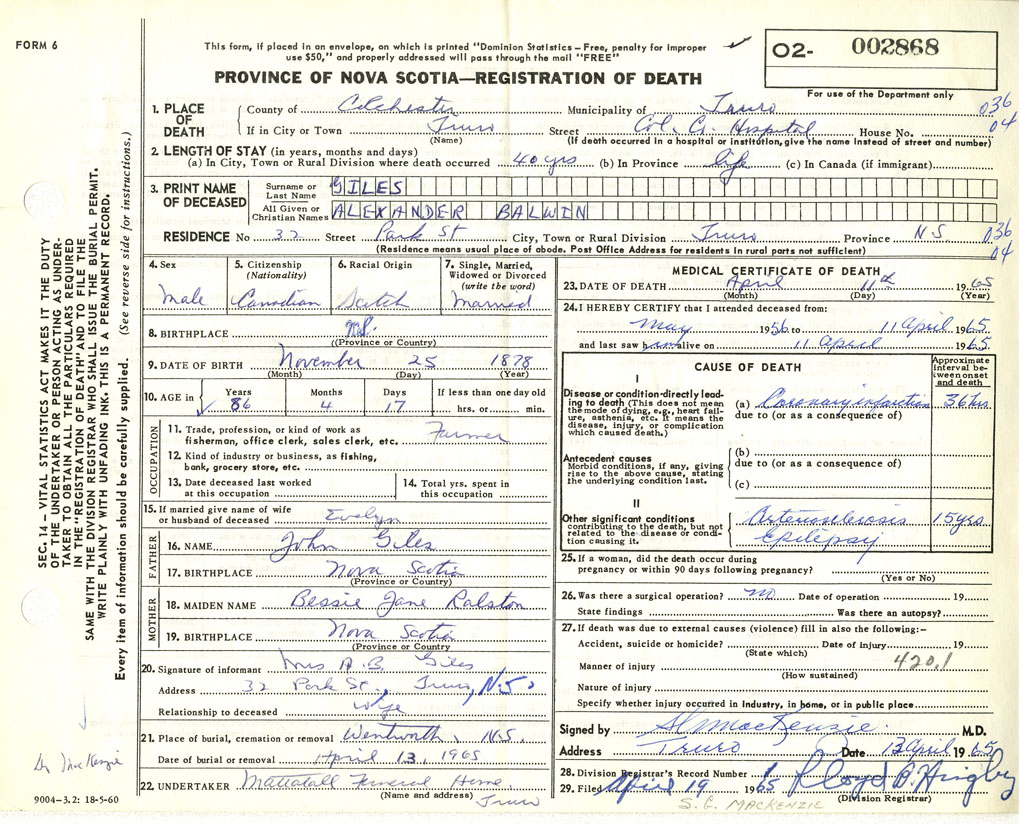 FORM 6
This form, if placed in an envelope, on which is printed "Dominion Statistics – Free, penalty for improper
use $50," and properly addressed will pass through the mail "FREE"
02- 002868
For use of the Department only
PROVINCE OF NOVA SCOTIA—REGISTRATION OF DEATH
1. PLACE OF DEATH
County of Colchester Municipality of Truro 036
If in City or Town Truro Street Col. Co. Hospital House No. 04
(Name) (If death occurred in a hospital or institution, give the name instead of street and number)
2. LENGTH OF STAY (in years, months and days)
(a) In City, Town or Rural Division where death occurred 40 yrs (b) In Province life (c) In Canada (if immigrant)
3. PRINT NAME OF DECEASED
Surname or Last Name GILES
All Given or Christian Names ALEXANDER BALWIN
RESIDENCE No 32 Street Park St City, Town or Rural Division Truro Province N S 036
(Residence means usual place of abode. Post Office Address for residents in rural parts not sufficient) 04
4. Sex
Male
5. Citizenship
(Nationality)
Canadian
6. Racial Origin
Scotch
7. Single, Married,
Widowed or Divorced
(write the word)
Married
8. BIRTHPLACE N.S.
(Province or Country)
9. DATE OF BIRTH November 25 1878
(Month) (Day) (Year)
10. AGE in Years Months Days If less than one day old
86 4 17 hrs. or min.
OCCUPATION
11. Trade, profession, or kind of work as
fisherman, office clerk, sales clerk, etc. Farmer
12. Kind of industry or business, as fishing,
bank, grocery store, etc.
13. Date deceased last worked
at this occupation
14. Total yrs. spent in
this occupation
15. If married give name of wife
or husband of deceased Evelyn
FATHER
16. NAME John Giles
17. BIRTHPLACE Nova Scotia
(Province or Country)
MOTHER
18. MAIDEN NAME Bessie Jane Ralston
19. BIRTHPLACE Nova Scotia
(Province or Country)
20. Signature of informant Mrs A. B. Giles
Address 32 Park St., Truro, N.S.
Relationship to deceased Wife
21. Place of burial, cremation or removal Wentworth, N.S.
Date of burial or removal April 13, 1965
22. UNDERTAKER Mattatall Funeral Home
(Name and address) Truro
MEDICAL CERTIFICATE OF DEATH
23. DATE OF DEATH April 11th 1965
(Month) (Day) (Year)
24. I HEREBY CERTIFY that I attended deceased from:
May 1956 to 11 April 1965
and last saw him alive on 11 April 1965.
CAUSE OF DEATH
Approximate
interval be-
tween onset
and death
I
Disease or condition directly lead-
ing to death (This does not mean
the mode of dying, e.g., heart fail-
ure, asthenia, etc. It means the
disease, injury, or complication
which caused death.)
(a) Coronary infarction 36 hrs
due to (or as a consequence of)
Antecedent causes
Morbid conditions, if any, giving
rise to the above cause, stating
the underlying condition last.
(b)
due to (or as a consequence of)
(c)
II
Other significant conditions
contributing to the death, but not
related to the disease or condi-
tion causing it.
Arteriosclerosis 15 yrs
Epilepsy
25. If a woman, did the death occur during
pregnancy or within 90 days following pregnancy?
(Yes or No)
26. Was there a surgical operation? no Date of operation 19
State findings Was there an autopsy?
27. If death was due to external causes (violence) fill in also the following:–
Accident, suicide or homicide? Date of injury 19
(State which)
Manner of injury 420.1
(How sustained)
Nature of injury
Specify whether injury occurred in industry, in home, or in public place
Signed by S G MacKenzie M.D.
Address Truro Date 13 April 1965
28. Division Registrar's Record Number
29. Filed April 19 1965
(Division Registrar)
S. G. MACKENZIE
SEC. 14 – VITAL STATISTICS ACT MAKES IT THE DUTY
OF THE UNDERTAKER OR PERSON ACTING AS UNDER-
TAKER TO OBTAIN ALL THE PARTICULARS REQUIRED
IN THE "REGISTRATION OF DEATH" AND TO FILE THE
SAME WITH THE DIVISION REGISTRAR WHO SHALL ISSUE THE BURIAL PERMIT.
WRITE PLAINLY WITH UNFADING INK. THIS IS A PERMANENT RECORD.
Every item of information should be carefully supplied. (See reverse side for instructions.)
Dr MacKenzie
9004-3.2: 18-5-60